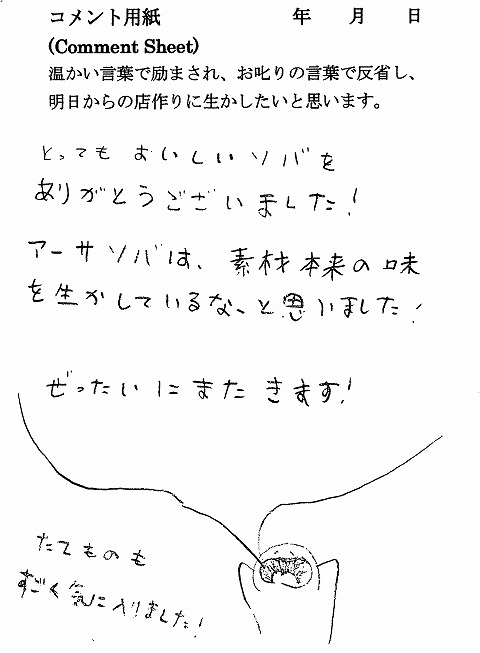 コメント用紙　年　月　日
(Comment Sheet)
温かい言葉で励まされ、お叱りの言葉で反省し、
明日からの店作りに生かしたいと思います。
とっても おいしいソバを
ありがとうございました!
アーサソバは、素材本来の味
を生かしているな、と思いました!
ぜったいにまた きます!
たてものも
すごく気に入りました!